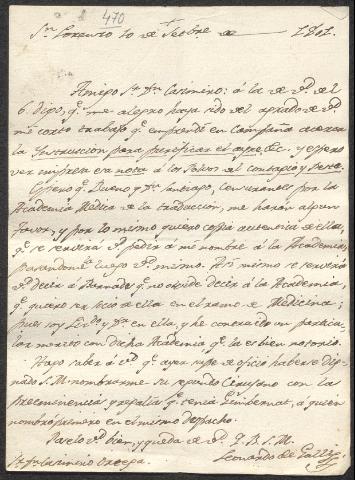 470
Sn. Lorenzo 10 de Septbre. de 1801.
Amigo Sr. Dn. Casimiro: á la de Vd. del
6. digo, q.e me alegro haya sido del agrado de Vd
mi corto trabajo q.e emprendí en Campaña acerca
la Instruccion para purificar el ayre &c. y espero
ver impresa esa nota á los de contagio y Peste.
Espero q.e Bueno y Dn. Santiago, Censurantes por la
Academia Medica de la traduccion, me harán algun
favor, y por lo mismo quiero copia autentica de ella,
q.e se servirá Vd. pedir á mi nombre á la Academia,
Vd. mismo. Asi mismo se servirá
Vd. decir á Bernades q.e no olvide decir á la Academia,
q.e quiero ser Socio de ella en el ramo de Medicina;
pues soy y Dr. en ella, y he contrahido un particu-
lar merito con dicha Academia q.e la es bien notorio.
Hago saber á Vd. q.e ayer supe de oficio haberse dig-
nado S.M. nombrarme su segundo Cirujano con las
Preeminencias y regalías q.e tenia Gimbernat, á quien
nombró primero en el mismo despacho.
Paselo Vd. bien, y queda de Vd. Q. B. S. M.
Leonardo de Galli
Sr. Dn. Casimiro Ortega